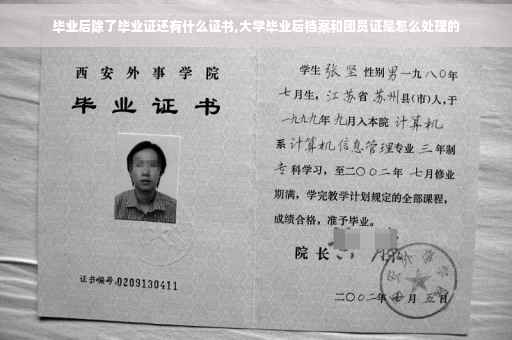 毕业后除了毕业证还有什么证书,大学毕业后档案和团员证是怎么处理的
西安外事学院
毕业证书
证书编号:0209130411
学生 张坚 性别 男 一九八〇年
七月生, 江苏省 苏州县(市)人,于
一九九九年 九月入本院 计算机
系 计算机信息管理专业 三 年制
专科学习, 至二〇〇二年 七月修业
期满, 学完教学计划规定的全部课程,
成绩合格, 准予毕业。
院长
二〇〇二年 月五日